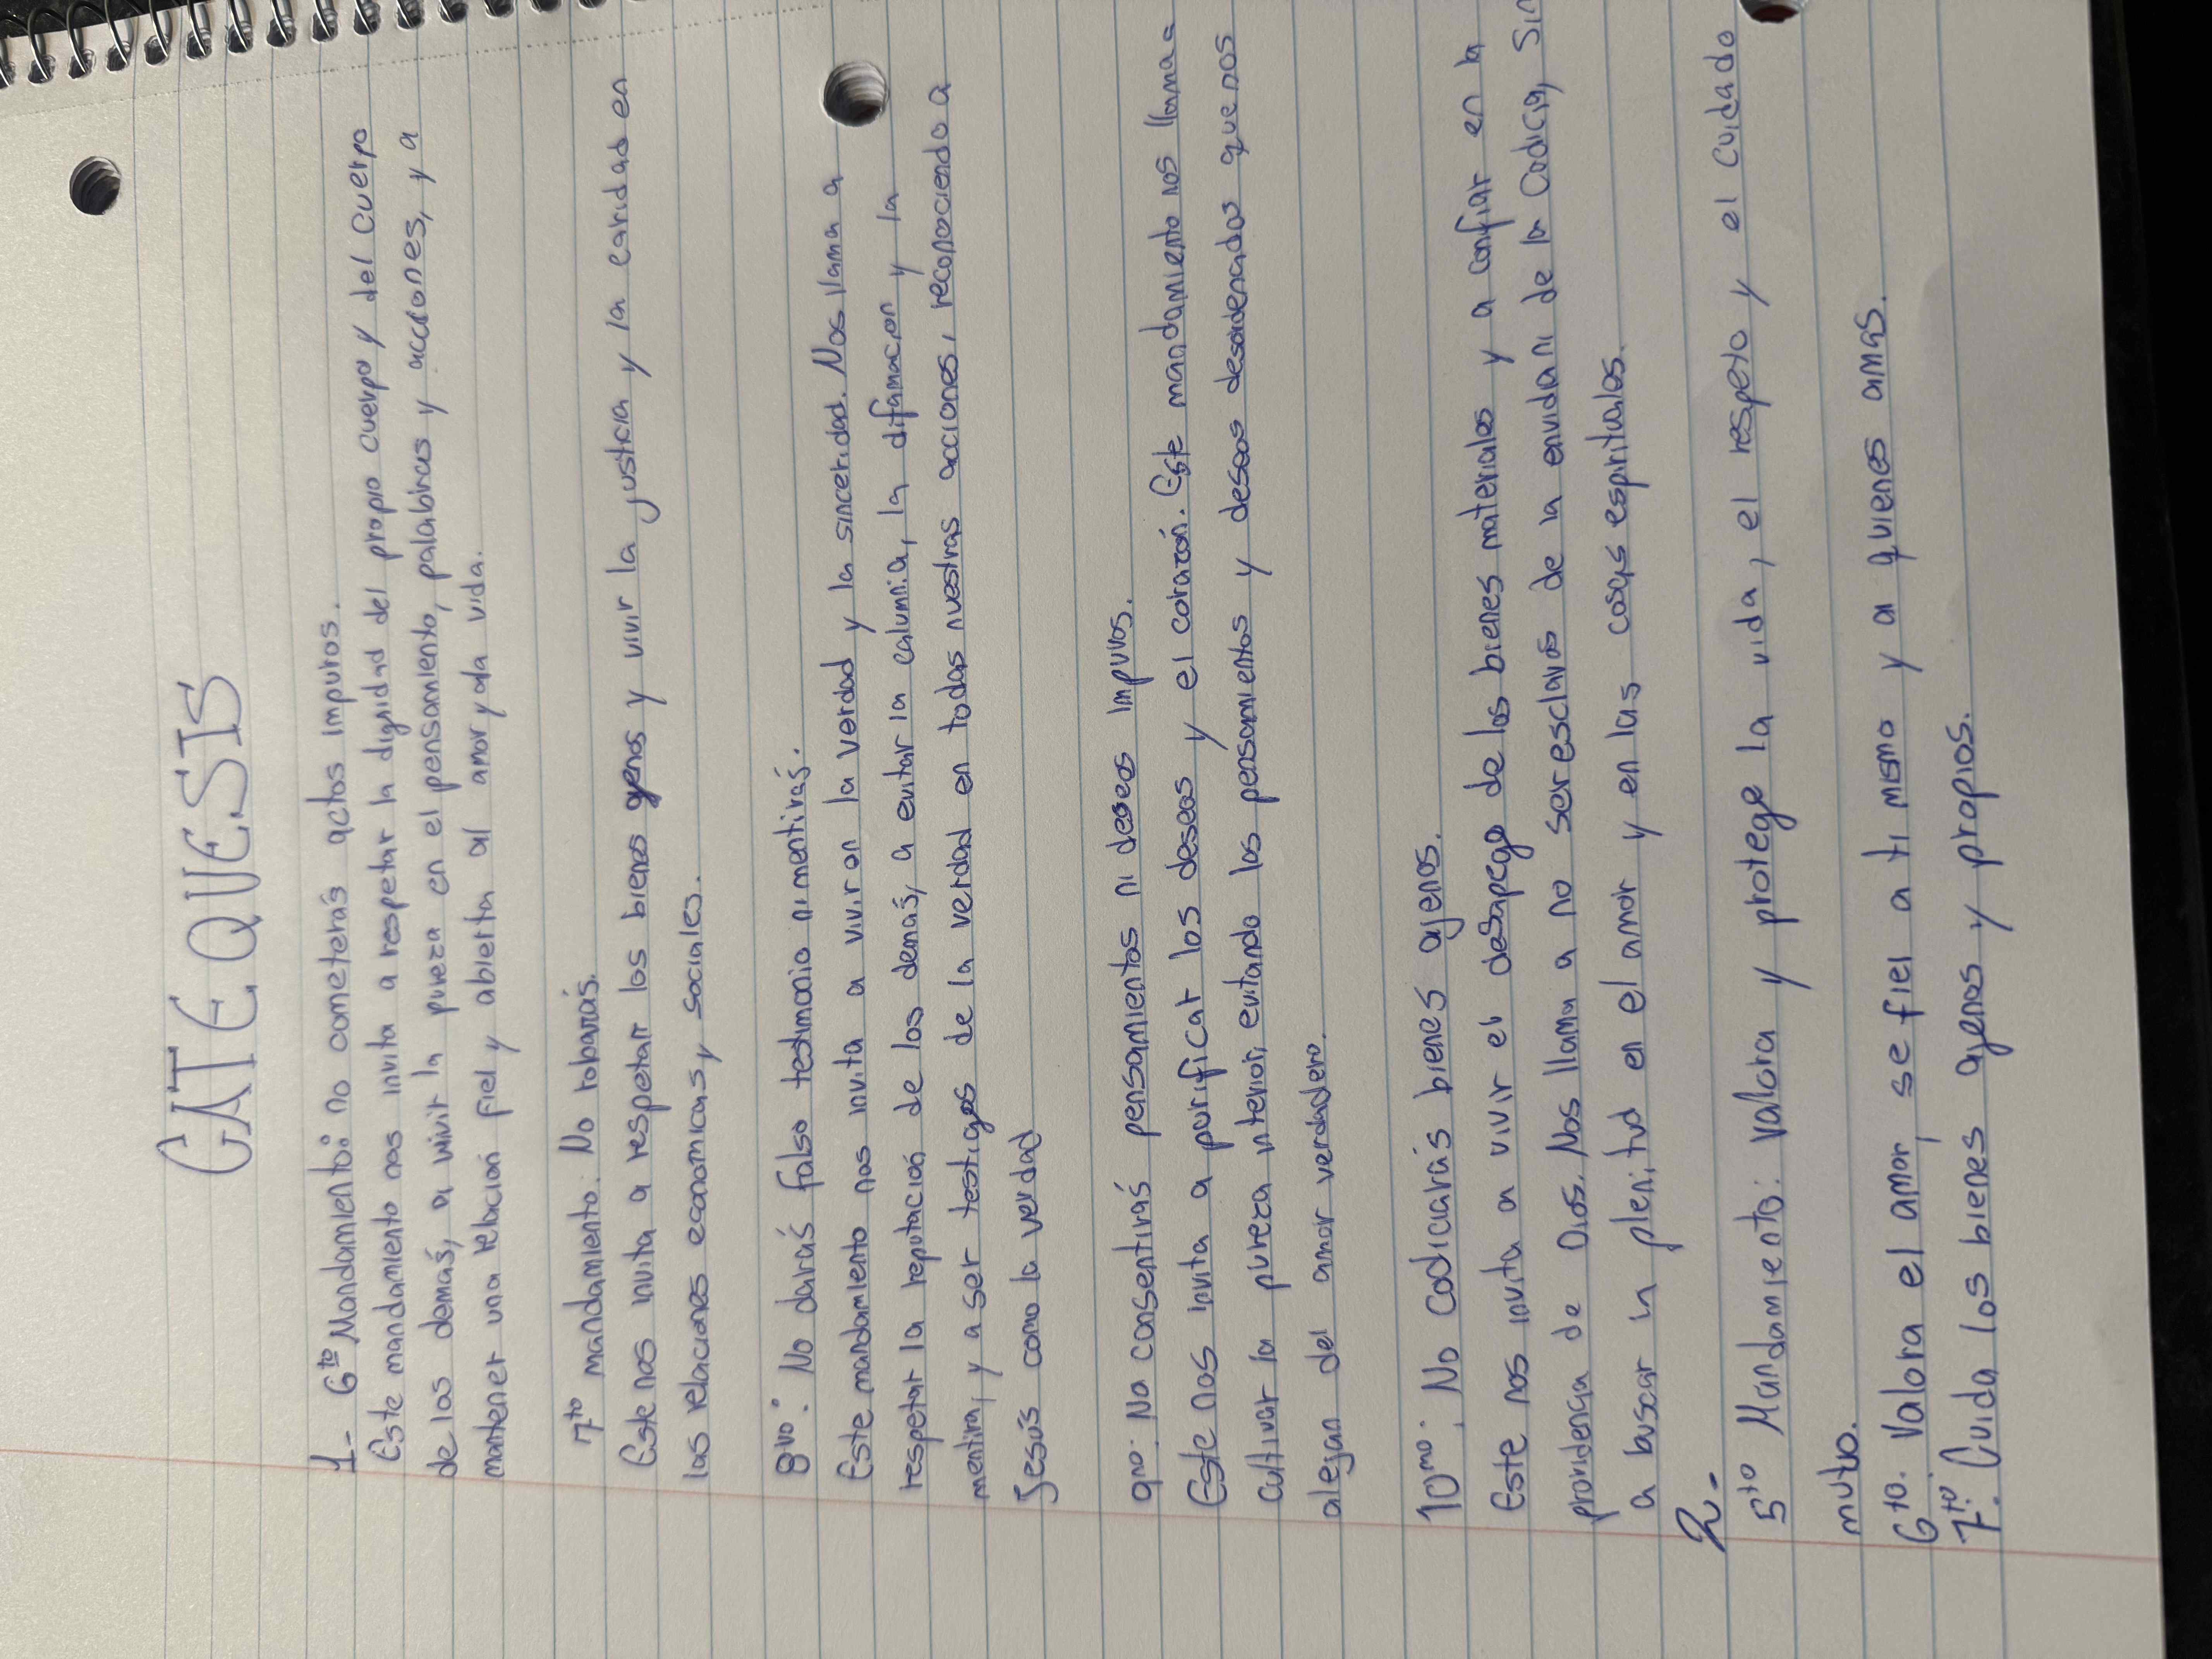 CATEQUESIS
1- 6to Mandamiento: no cometerás actos impuros.
Este mandamiento nos invita a respetar la dignidad del propio cuerpo y del cuerpo
de los demás, a vivir la pureza en el pensamiento, palabras y acciones, y a
mantener una relación fiel y abierta al amor y a la vida.
7to mandamiento: No robarás.
Este nos invita a respetar los bienes ajenos y vivir la justicia y la caridad en
las relaciones economicas y sociales.
8vo: No darás falso testimonio ni mentirás.
Este mandamiento nos invita a vivir en la verdad y la sinceridad. Nos llama a
respetar la reputación de los demás, a evitar la calumnia, la difamacion y la
mentira, y a ser testigos de la verdad en todas nuestras acciones, reconociendo a
Jesús como la verdad
9no: No consentirás pensamientos ni deseos impuros.
Este nos invita a purificar los deseos y el corazón. Este mandamiento nos llama a
cultivar la pureza interior, evitando los pensamientos y deseos desordenados que nos
alejan del amor verdadero.
10mo: No Codiciarás bienes ajenos.
Este nos invita a vivir el desapego de los bienes materiales y a confiar en la
providencia de Dios. Nos llama a no ser esclavos de la envidia ni de la Codicia, Sin
a buscar la plenitud en el amor y en las cosas espirituales.
2-
5to Mandamiento: Valora y protege la vida, el respeto y el cuidado
mutuo.
6to. Valora el amor, se fiel a ti mismo y a quienes amas.
7to. Cuida los bienes ajenos y propios.